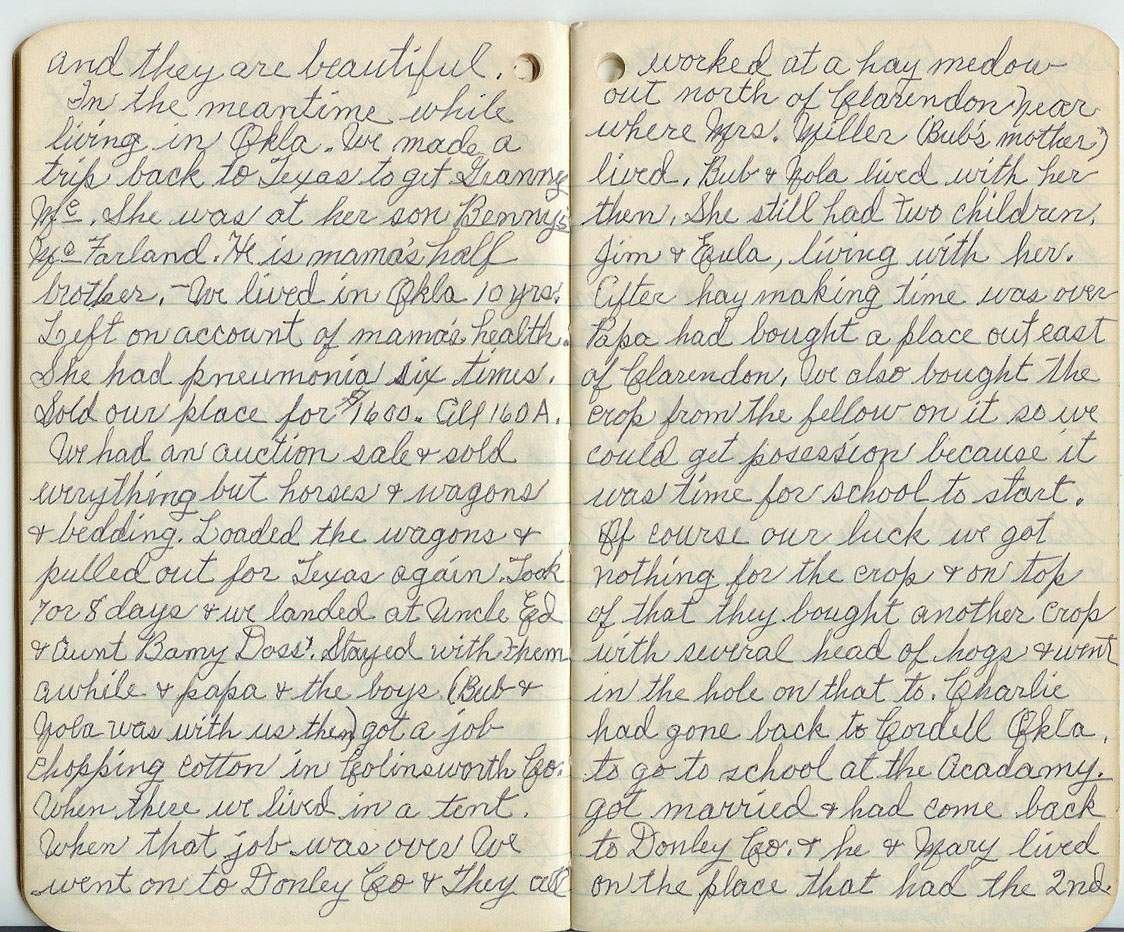 and they are beautiful.
In the meantime while
living in Okla. We made a
trip back to Texas to get Granny
Mc. She was at her son Benny's
McFarland. He is mama's half
brother. - We lived in Okla 10 yrs.
Left on account of mama's health.
She had pneumonia six times.
Sold our place for $1600. All 160 A.
We had an auction sale & sold
everything but horses & wagons
& bedding. Loaded the wagons &
pulled out for Texas again. Took
7 or 8 days & we landed at Uncle Ed
& Aunt Bamy Doss'. Stayed with them
awhile & papa & the boys (Bub &
Nola was with us then) got a job
chopping cotton in Colinsworth Co.
When there we lived in a tent.
When that job was over We
went on to Donley Co & They all
worked at a hay medow
out north of Clarendon near
where Mrs. Miller (Bub's mother)
lived. Bub & Nola lived with her
then. She still had two children,
Jim & Eula, living with her.
After hay making time was over
Papa had bought a place out east
of Clarendon. We also bought the
crop from the fellow on it so we
could get posession because it
was time for school to start.
Of course our luck we got
nothing for the crop & on top
of that they bought another crop
with several head of hogs & went
in the hole on that to. Charlie
had gone back to Cordell Okla.
to go to school at the Acadamy.
got married & had come back
to Donley Co. & he & Mary lived
on the place that had the 2nd.